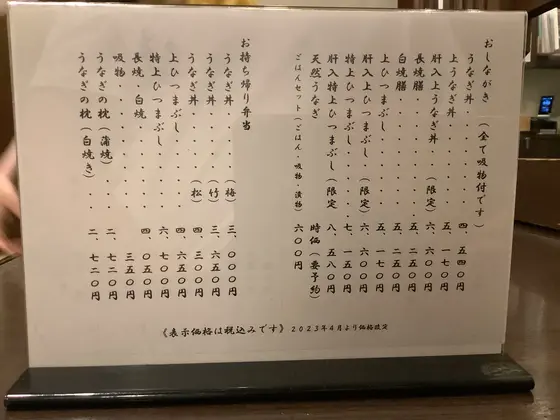 おしながき (全て吸物付です)
うなぎ丼・・・・・・・四、五四〇円
上うなぎ丼・・・・・・五、一七〇円
肝入上うなぎ丼 (限定) 六、六〇〇円
長焼膳・・・・・・・・五、二五〇円
白焼膳・・・・・・・・五、二五〇円
上ひつまぶし・・・・・五、一七〇円
肝入上ひつまぶし (限定) 六、六〇〇円
特上ひつまぶし・・・・七、一五〇円
肝入特上ひつまぶし (限定) 八、五八〇円
天然うなぎ 時価 (要予約)
ごはんセット (ごはん・吸物・漬物) 六〇〇円
お持ち帰り弁当
うなぎ丼・・・・・(梅) 三、〇〇〇円
うなぎ丼・・・・・(竹) 三、六五〇円
うなぎ丼・・・・・(松) 四、四〇〇円
上ひつまぶし・・・・・四、六五〇円
特上ひつまぶし・・・・六、七〇〇円
長焼・白焼・・・・・・四、〇五〇円
吸物・・・・・・・・・三五〇円
うなぎの枕 (蒲焼)・・・二、七二〇円
うなぎの枕 (白焼き)・・二、七二〇円
《表示価格は税込みです》 2023年4月より価格改定